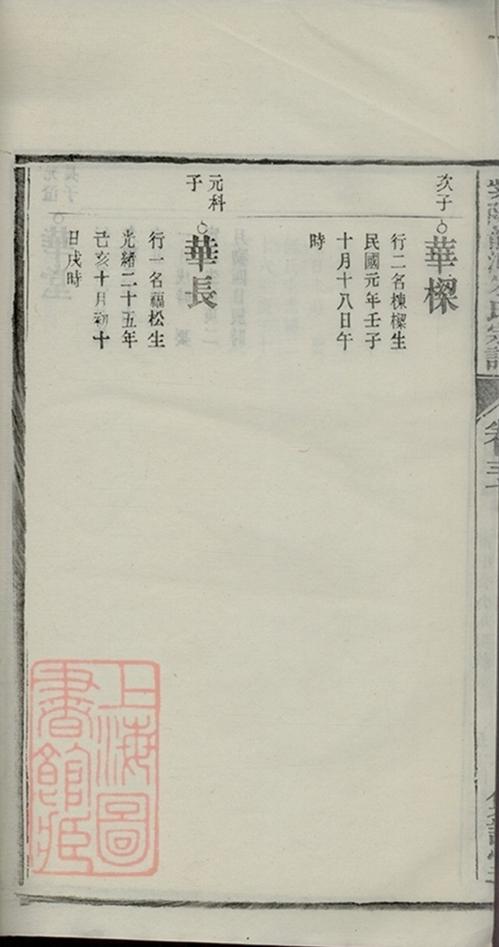 次子
華樑
行二名棟樑生
民國元年壬子
十月十八日午
時
元科
子
華長
行一名福松生
光緒二十五年
己亥十月初十
日戌時
上海圖
書館藏